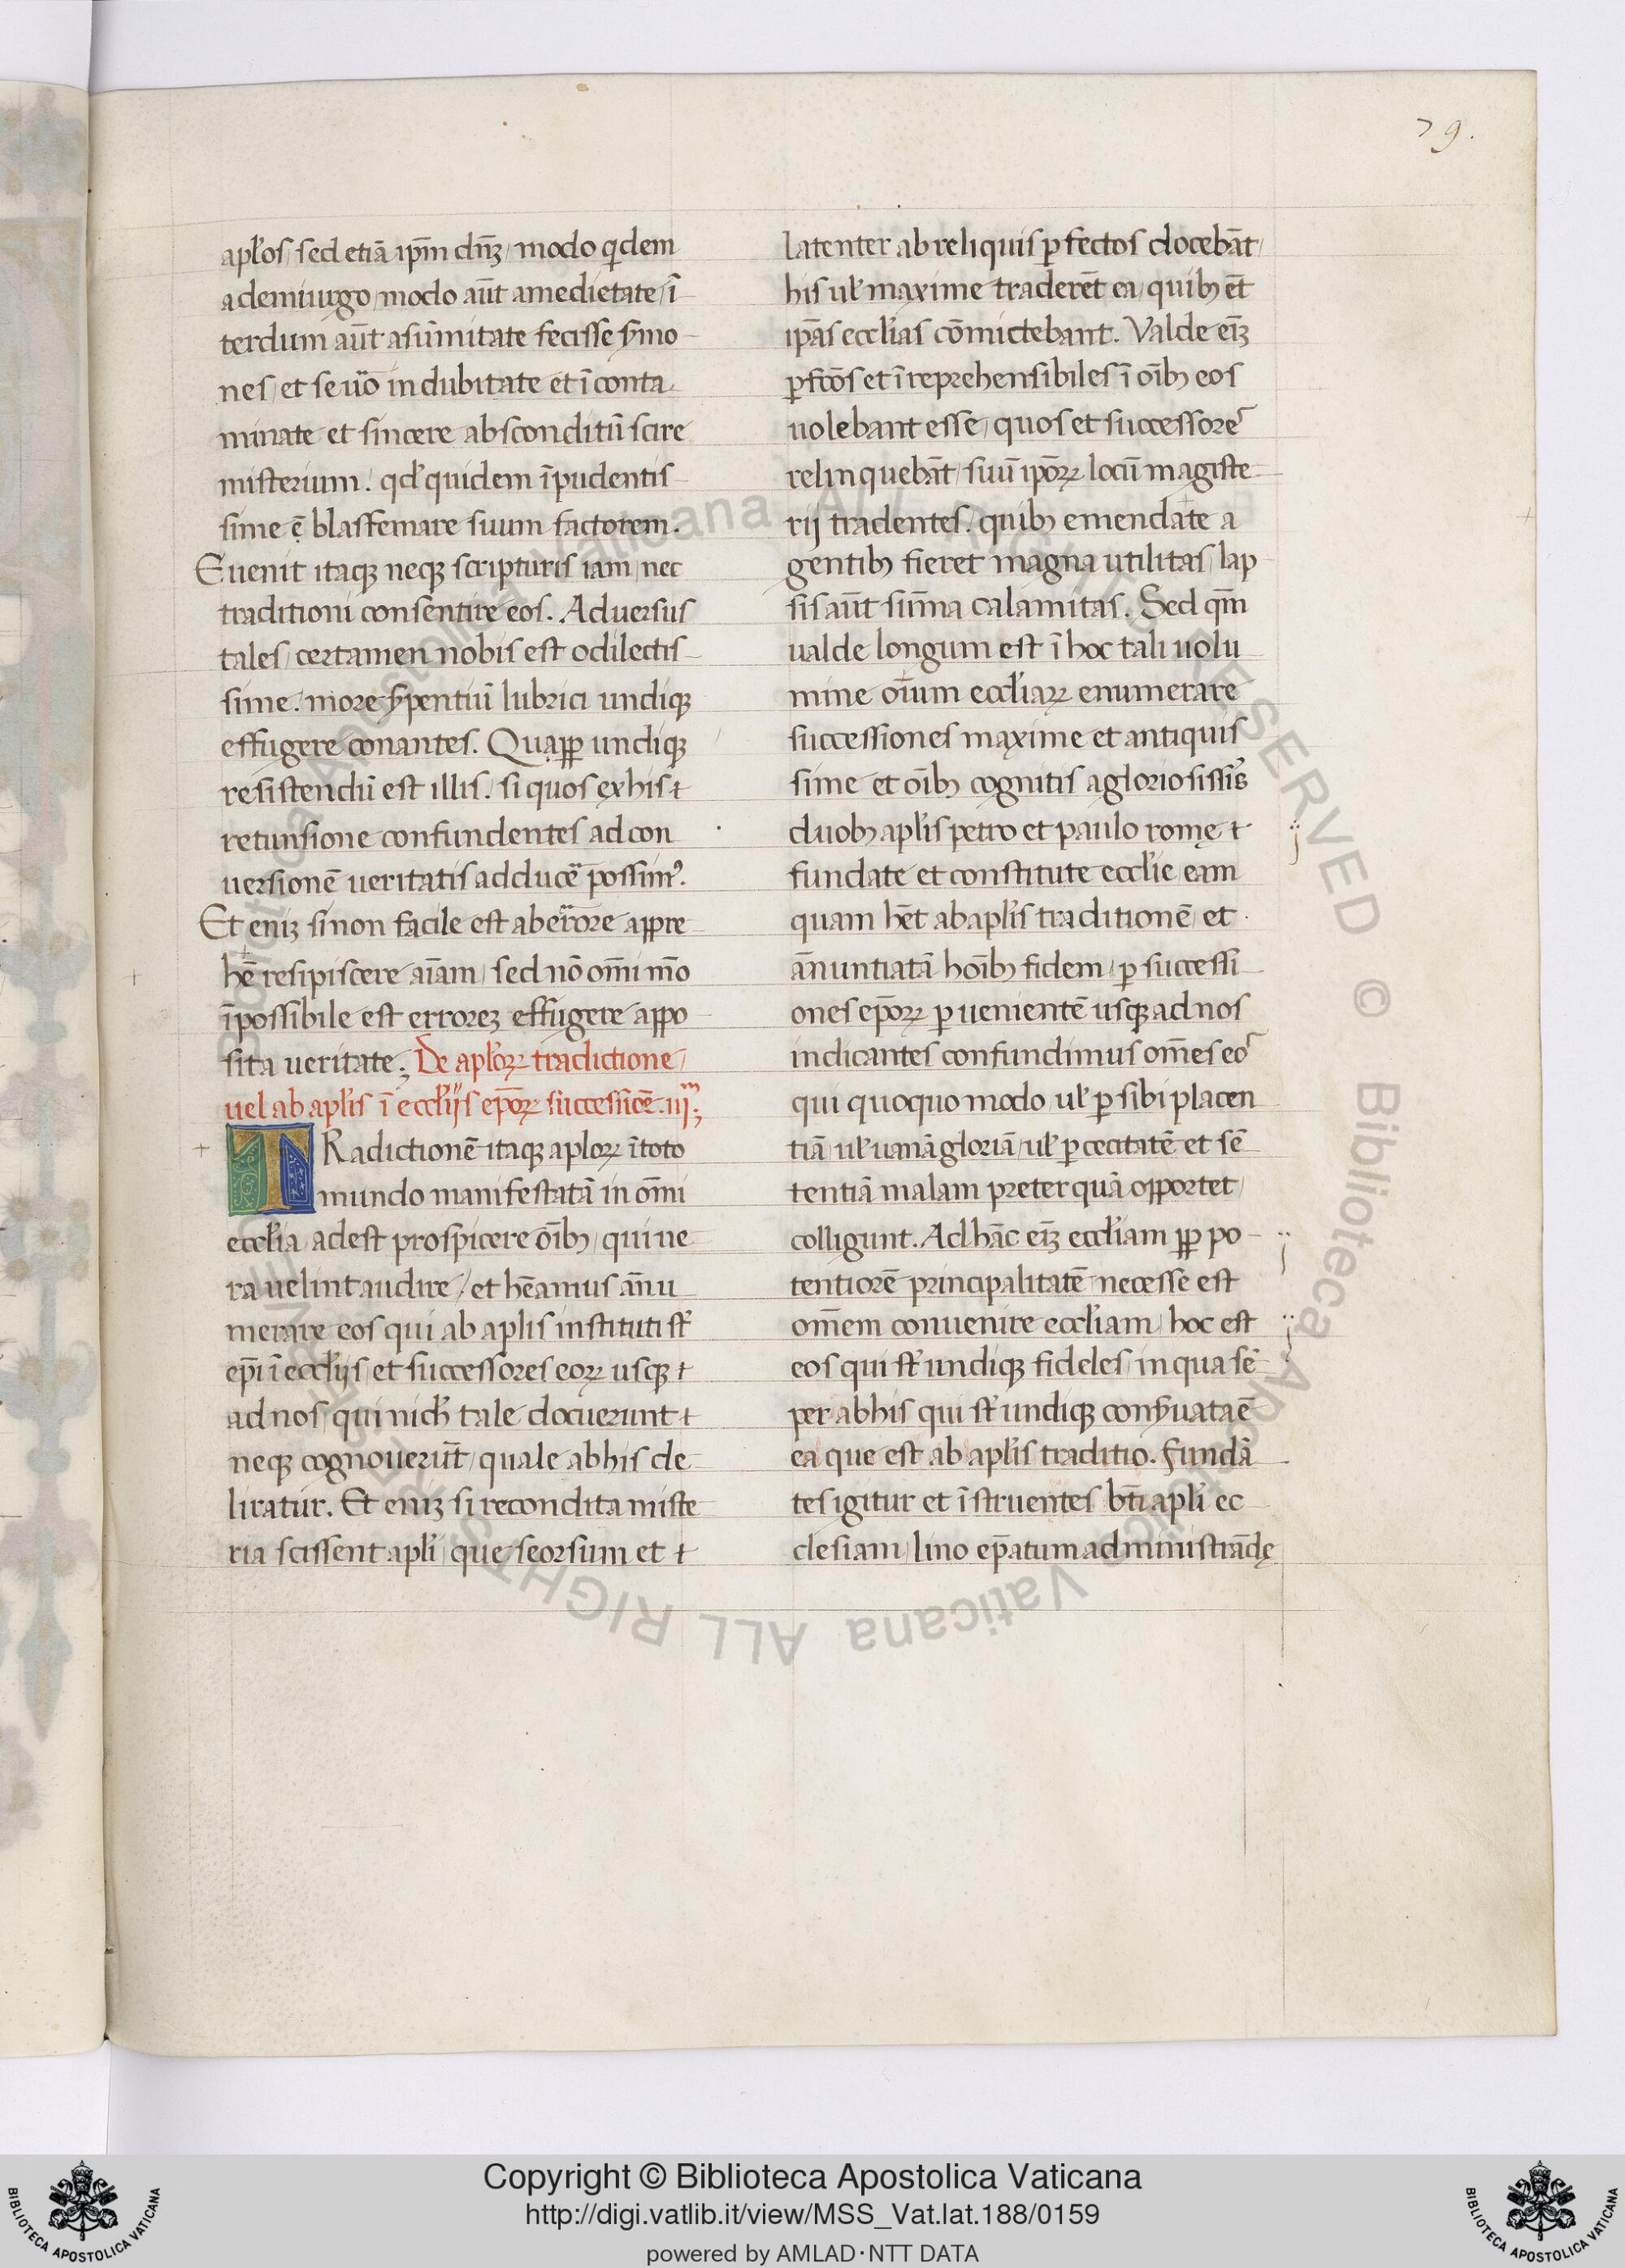 79.
apl̄os, sed etiā ip̄m dn̄ꝫ, modo qͥdem
a demiurgo, modo aūt a medietate, ī
terdum aūt a sūmitate fecisse ẜmo
nes, et se ūo indubitate et īconta
minate et sincere absconditū scire
misterium. qd̄ quidem īpudentis
sime ē blasfemare suum factorem.
Euenit itaqꝫ neqꝫ scripturis iam, nec
traditioni consentire eos. Aduersus
tales, certamen nobis est o dilectis
sime. more ẜpentiū lubrici undiqꝫ
effugere conantes. Quaꝓp undiqꝫ
resistendū est illis. si quos ex his +
retunsione confundentes ad con
uersionē ueritatis adducē possimꝰ.
Et eniꝫ si non facile est ab errore appre
hē resipiscere aīam, sed nō om̄i m̄o
īpossibile est erroreꝫ effugere appo
sita ueritate; De apl̄oꝝ tradictione,
uel ab apl̄is ī eccl̄ijs ep̄oꝝ successiōe. iij;
TRadictionē itaqꝫ aploꝝ ī toto
mundo manifestatā in om̄i
eccl̄ia, adest prospicere oībꝫ, qui ue
ra uelint audire, et hēamus ānu
merare eos qui ab aplis instituti st̄
ep̄i ī eccl̄ijs, et successores eoꝝ usqꝫ +
ad nos, qui nich̄ tale docuerunt +
neqꝫ cognouerūt, quale ab his de
liratur. Et eniꝫ si recondita miste
ria scissent apl̄i, que seorsum et +
latenter ab reliquis ꝑfectos docebāt,
his ul̄ maxime traderēt ea, quibꝫ ēt
ip̄as eccl̄ias cōmictebant. Valde eīꝫ
ꝑfc̄os et īreprehensibiles ī oībꝫ eos
uolebant esse, quos et successores
relinquebāt, suū ip̄oꝝ locū magiste
rij tradentes. quibꝫ emendate a
gentibꝫ fieret magna utilitas, lap
sis aūt sūma calamitas. Sed qm̄
ualde longum est ī hoc tali uolu
mine oīum eccl̄iaꝝ enumerare
successiones maxime et antiquis
sime et oībꝫ cognitis a gloriosissīs
duobꝫ apl̄is petro et paulo romę +
fundate et constitute eccl̄ie, eam
quam hēt ab apl̄is traditionē, et
ānuntiatā hoībꝫ fidem, ꝑ successi
ones ep̄oꝝ ꝑuenientē usqꝫ ad nos
indicantes confundimus om̄es eos
qui quoquo modo, ul̄ ꝑ sibi placen
tiā, ul̄ uanā gloriā, ul̄ ꝑ cecitatē et sē
tentiā malam preter quā opportet,
colligunt. Ad hāc eīꝫ eccl̄iam ꝓp po
tentiorē principalitatē necesse est
om̄em conuenire eccl̄iam, hoc est
eos qui st̄ undiqꝫ fideles, in qua sē
per ab his qui st̄ undiqꝫ conẜuata ē
ea que est ab apl̄is traditio. Fundā
tes igitur et īstruentes bt̄i apl̄i ec
clesiam, lino ep̄atum administrādę
Biblioteca Apostolica Vaticana ALL RIGHTS RESERVED © Biblioteca Apostolica Vaticana ALL RIGHTS RESERVED ©
Copyright © Biblioteca Apostolica Vaticana
http://digi.vatlib.it/view/MSS_Vat.lat.188/0159
powered by AMLAD·NTT DATA
BIBLIOTECA APOSTOLICA VATICANA
BIBLIOTECA APOSTOLICA VATICANA